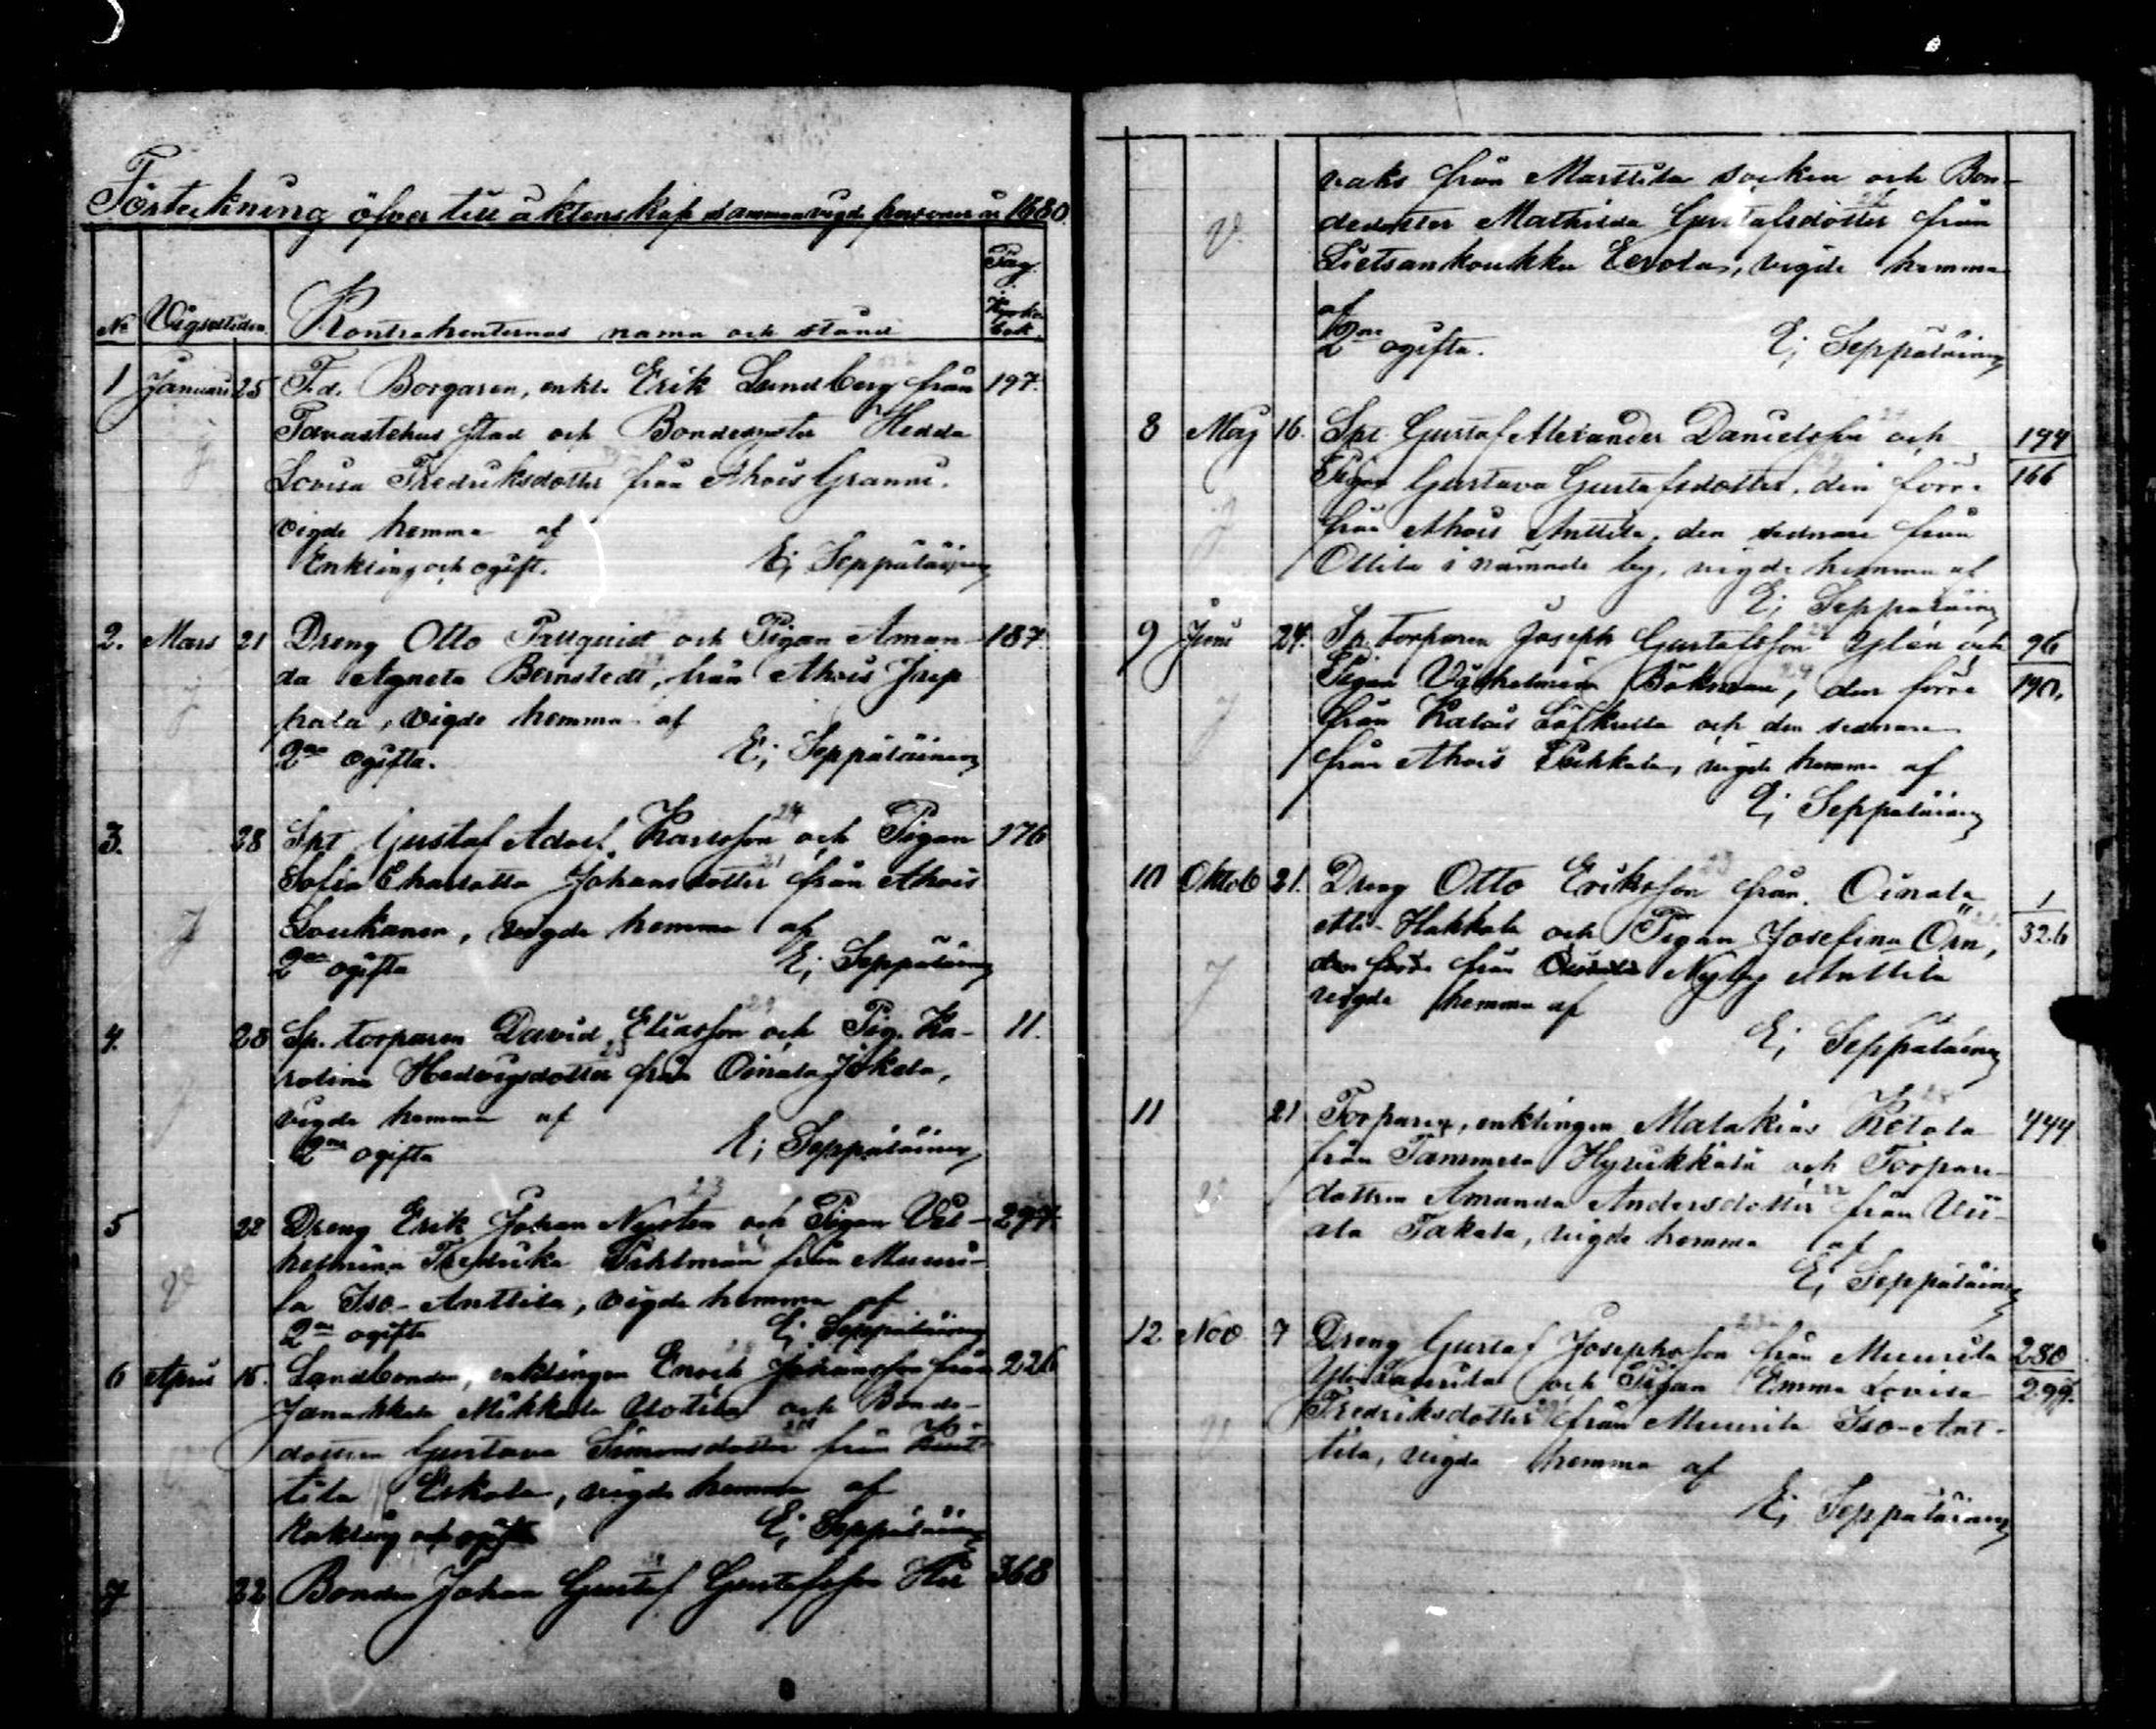 Förteckning öfver till äktenskap sammanvigde personer år 1880.
No Vigselstiden. Kontrahenternas namn och stånd Pag. i Kyrko bok.
1 Januari 25 F.d. Borgaren, enkl. Erik Lundberg från 197.
Tavastehus stad och Bondedotter Hedda
Lovisa Fredriksdotter från Ahois
vigde hemma af
Enkling och ogift. E; Seppäläinen
2. Mars 21 Dreng Otto Pallquist och Pigan Aman- 187.
da Agneta Bernstedt, från Ahois Jaip
pala, vigde hemma af
2ne ogifta. E; Seppäläinen
3. 28 Spt Gustaf Adolf Karlsson 24 och Pigan 176
Sofia Charlotta Johansdotter 21 från Ahois
Loukanen, vigde hemma af
2ne ogifta E; Seppäläinen
4. 28 Sp. torparen David Eliasson 29 och Pig. Ka- 11.
rolina Hedvigsdotter 23 från Oinala Jokela,
vigde hemma af
2ne ogifta E; Seppäläinen
23
5 22 Dreng Erik Johan Nysten och Pigan Vil- 297.
helmina Fredrika Pihlman från Muuri-
la Iso-Anttila, vigde hemma af
2ne ogifta E; Seppäläinen
6 April 15. Landbonden, enklingen Enoch Johansson från 226
Janakkala Mikkola Uotila och Bonde-
dottren Gustava Simonsdotter från Kut
tila Eskola, vigde hemma af
Enkling och ogift E; Seppäläinen
7 22 Bonden Johan Gustaf Gustafsson 368
vaks från Marttila socken och Bon-
dedotter Mathilda Gustafsdotter från
Lietsankoukku Eerola, vigde hemma
af
2ne ogifta. E; Seppäläinen
8 Maj 16. Spt. Gustaf Alexander Danielsson och 194
Pigan Gustava Gustafsdotter, den förre 166
från Ahois Anttila, den sednare från
Ollila i nämnde by, vigde hemma af
E; Seppäläinen
9 Juni 24. Sp. torparen Joseph Gustafsson Ylén och 96
Pigan Vilhelmina Bökman, 24 den förre 190.
från Kalais Löfkulla och den sednare
från Ahois Pukkala, vigde hemma af
E; Seppäläinen
10 Oktob 21. Dreng Otto Eriksson 23 från Oinala 1
Ali-Hakkala och Pigan Josefina Örn, 326
den förre från Nyby Anttila
vigde hemma af
E; Seppäläinen
11 21 Torparen, enklingen Malakias Ketola 444
från Tammela Hyrukkälä och Torpare-
dottren Amanda Andersdotter 22 från Vii-
ala Takala, vigde hemma af
E; Seppäläinen
12. Nov. 7 Dreng Gustaf Josephsson från Muurila 280
Yli Laurila och Pigan Emma Lovisa 299.
Fredriksdotter från Muurila Iso-Ant-
tila, vigde hemma af
E; Seppäläinen